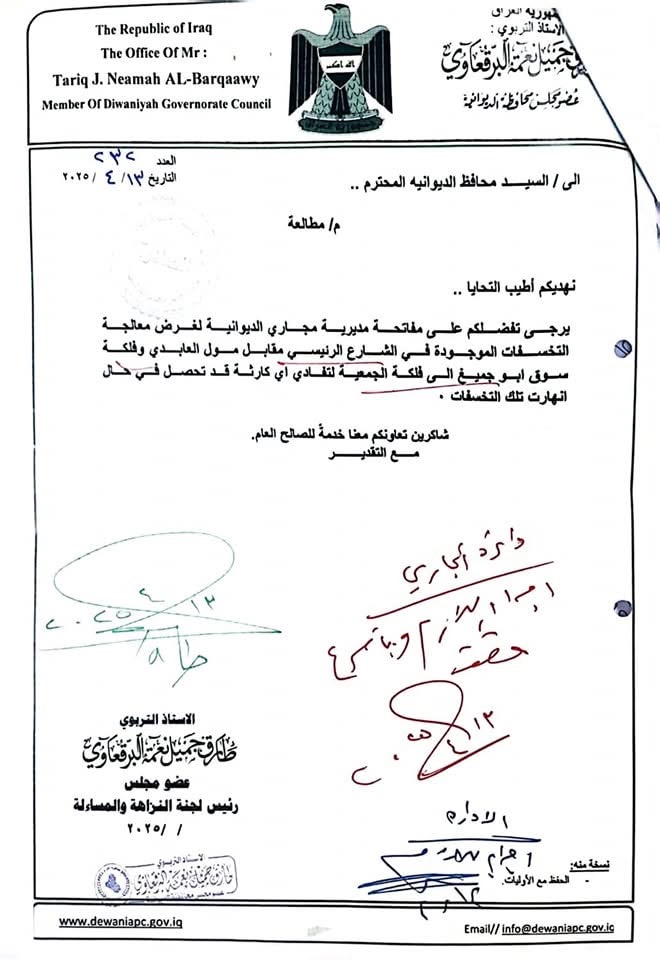 The Republic of Iraq
The Office Of Mr :
Tariq J. Neamah AL-Barqaawy
Member Of Diwaniyah Governorate Council
الله اكبر
جمهورية العراق
الاستاذ التربوي :
جميل نعمة البرقعاوي
عضو مجلس محافظة الديوانية
العدد ٢٣٢
التاريخ ١٣/ ٤ /٢٠٢٥
الى / السيـــد محافظ الديوانيه المحترم ..
م/ مطالعة
نهديكم أطيب التحايا ..
يرجى تفضلكم على مفاتحة مديرية مجاري الديوانية لغرض معالجة
التخسفات الموجودة في الشارع الرئيسي مقابل مول العابدي وفلكة
سوق ابو جميغ الى فلكة الجمعية لتفادي أي كارثة قد تحصل في حال
انهارت تلك التخسفات .
شاكرين تعاونكم معنا خدمةً للصالح العام.
مــع التقديــر
دائرة المجاري
اجراء اللازم وبالسرعة
١٣/٤
٢٠٢٥
١٣
٤
٢٠٢٥
الاستاذ التربوي
طارق جميل نعمة البرقعاوي
عضو مجلس
رئيس لجنة النزاهة والمساءلة
/ /٢٠٢٥
الاستاذ التربوي
طارق جميل نعمة البرقعاوي
الادارة
اجراء اللازم
نسخة منه:
- الحفظ مع الأوليات.
www.dewaniapc.gov.iq
Email// info@dewaniapc.gov.iq